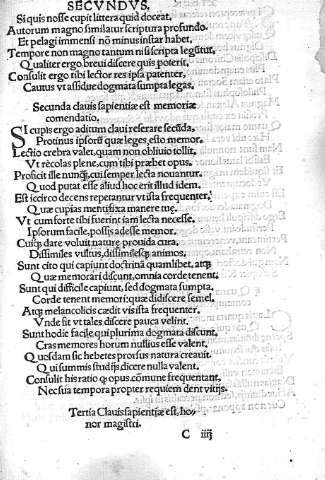 SECVNDVS,
Si quis nosse cupit littera quid doceat,
Autorum magno similatur scriptura profundo.
Et pelagi immensi nõ minus instar habet,
Tempore non magno tantum ni si scripta legitur,
Qualiter ergo breui discere quis poterit,
Consulit ergo tibi lector res ipsa patenter,
Cautus vt assidue dogmata sumpta legas,
Secunda clauis sapientiæ est memoriæ
comendatio,
SI cupis ergo aditum claui reserare secũda,
Protinus ipsorũ quæ leges, esto memor.
Lectio crebra valet, quam non obliuio tollit,
Vt recolas plene, cum tibi præbet opus.
Proficit ille nunq̃, cui semper lecta nouantur.
Quod putat esse aliud hoc erit illud idem.
Est iccirco decens repetantur vt ista frequenter,
Quæ cupias mentis fixa manere tuæ.
Vt cum forte tibi fuerint iam lecta necesse.
Ipsorum facile, possis adesse memor.
Cuiq̃ dare voluit nature prouida cura,
Dissimiles vultus, dissimilesq; animos,
Sunt cito qui capiunt doctrinã quamlibet, atq;
Quæ memorari discunt, omnia corde tenent;
Sunt qui difficile capiunt, sed dogmata sumpta,
Corde tenent memori: quæ didicere semel,
Atq; melancolicis cædit vis ista frequenter.
Vnde sit vt tales discere pauca velint.
Sunt hodie facile, qui plurima dogmata discunt,
Cras memores horum nullius esse valent,
Quosdam sic hebetes prorsus natura creauit.
Qui summis studijs, dicere nulla valent.
Consulit his ratio q; opus, cõmune frequentant,
Nec sua tempora propter requiem dent vitijs.
Tertia Clauis sapientiæ est, ho⸗
nor magistri.
C iiij